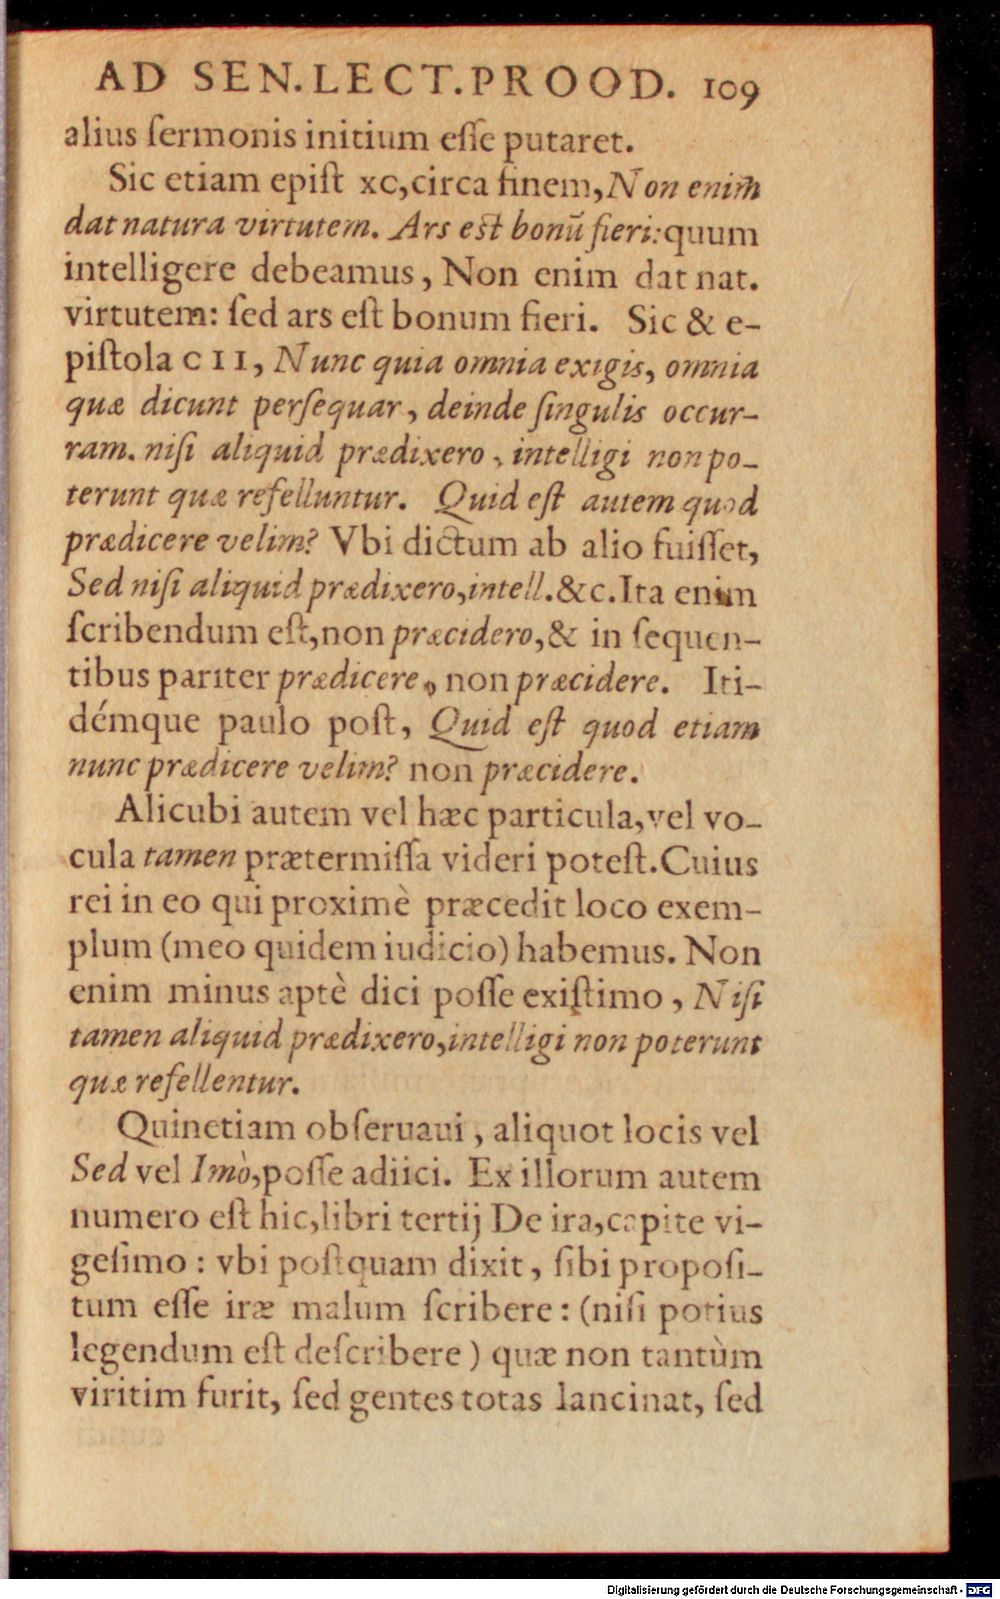 AD SEN.LECT.PROOD. 109
alius ſermonis initium eſſe putaret.
Sic etiam epiſt xc,circa finem,Non enim̃
dat natura virtutem. Ars eſt bonū fieri:quum
intelligere debeamus, Non enim dat nat.
virtutem: ſed ars eſt bonum fieri. Sic & e-
piſtola CII, Nunc quia omnia exigis, omnia
quæ dicunt perſequar, deinde ſingulis occur-
ram. niſi aliquid prædixero, intelligi non po-
terunt quæ refelluntur. Quid eſt autem quod
prædicere velim? Vbi dictum ab alio fuiſſet,
Sed niſi aliquid prædixero,intell.&c.Ita enim
ſcribendum eſt,non præcidero,& in ſequen-
tibus pariter prædicere, non præcidere. Iti-
démque paulo poſt, Quid eſt quod etiam
nunc prædicere velim? non præcidere.
Alicubi autem vel hæc particula,vel vo-
cula tamen prætermiſſa videri poteſt.Cuius
rei in eo qui proximè præcedit loco exem-
plum (meo quidem iudicio) habemus. Non
enim minus aptè dici poſſe exiſtimo, Niſi
tamen aliquid prædixero,intelligi non poterunt
quæ refellentur.
Quinetiam obſeruaui, aliquot locis vel
Sed vel Imò,poſſe adiici. Ex illorum autem
numero eſt hic,libri tertij De ira,capite vi-
geſimo : vbi poſtquam dixit, ſibi propoſi-
tum eſſe iræ malum ſcribere: (niſi potius
legendum eſt deſcribere) quæ non tantùm
viritim furit, ſed gentes totas lancinat, ſed
Digitalisierung gefördert durch die Deutsche Forschungsgemeinschaft - DFG